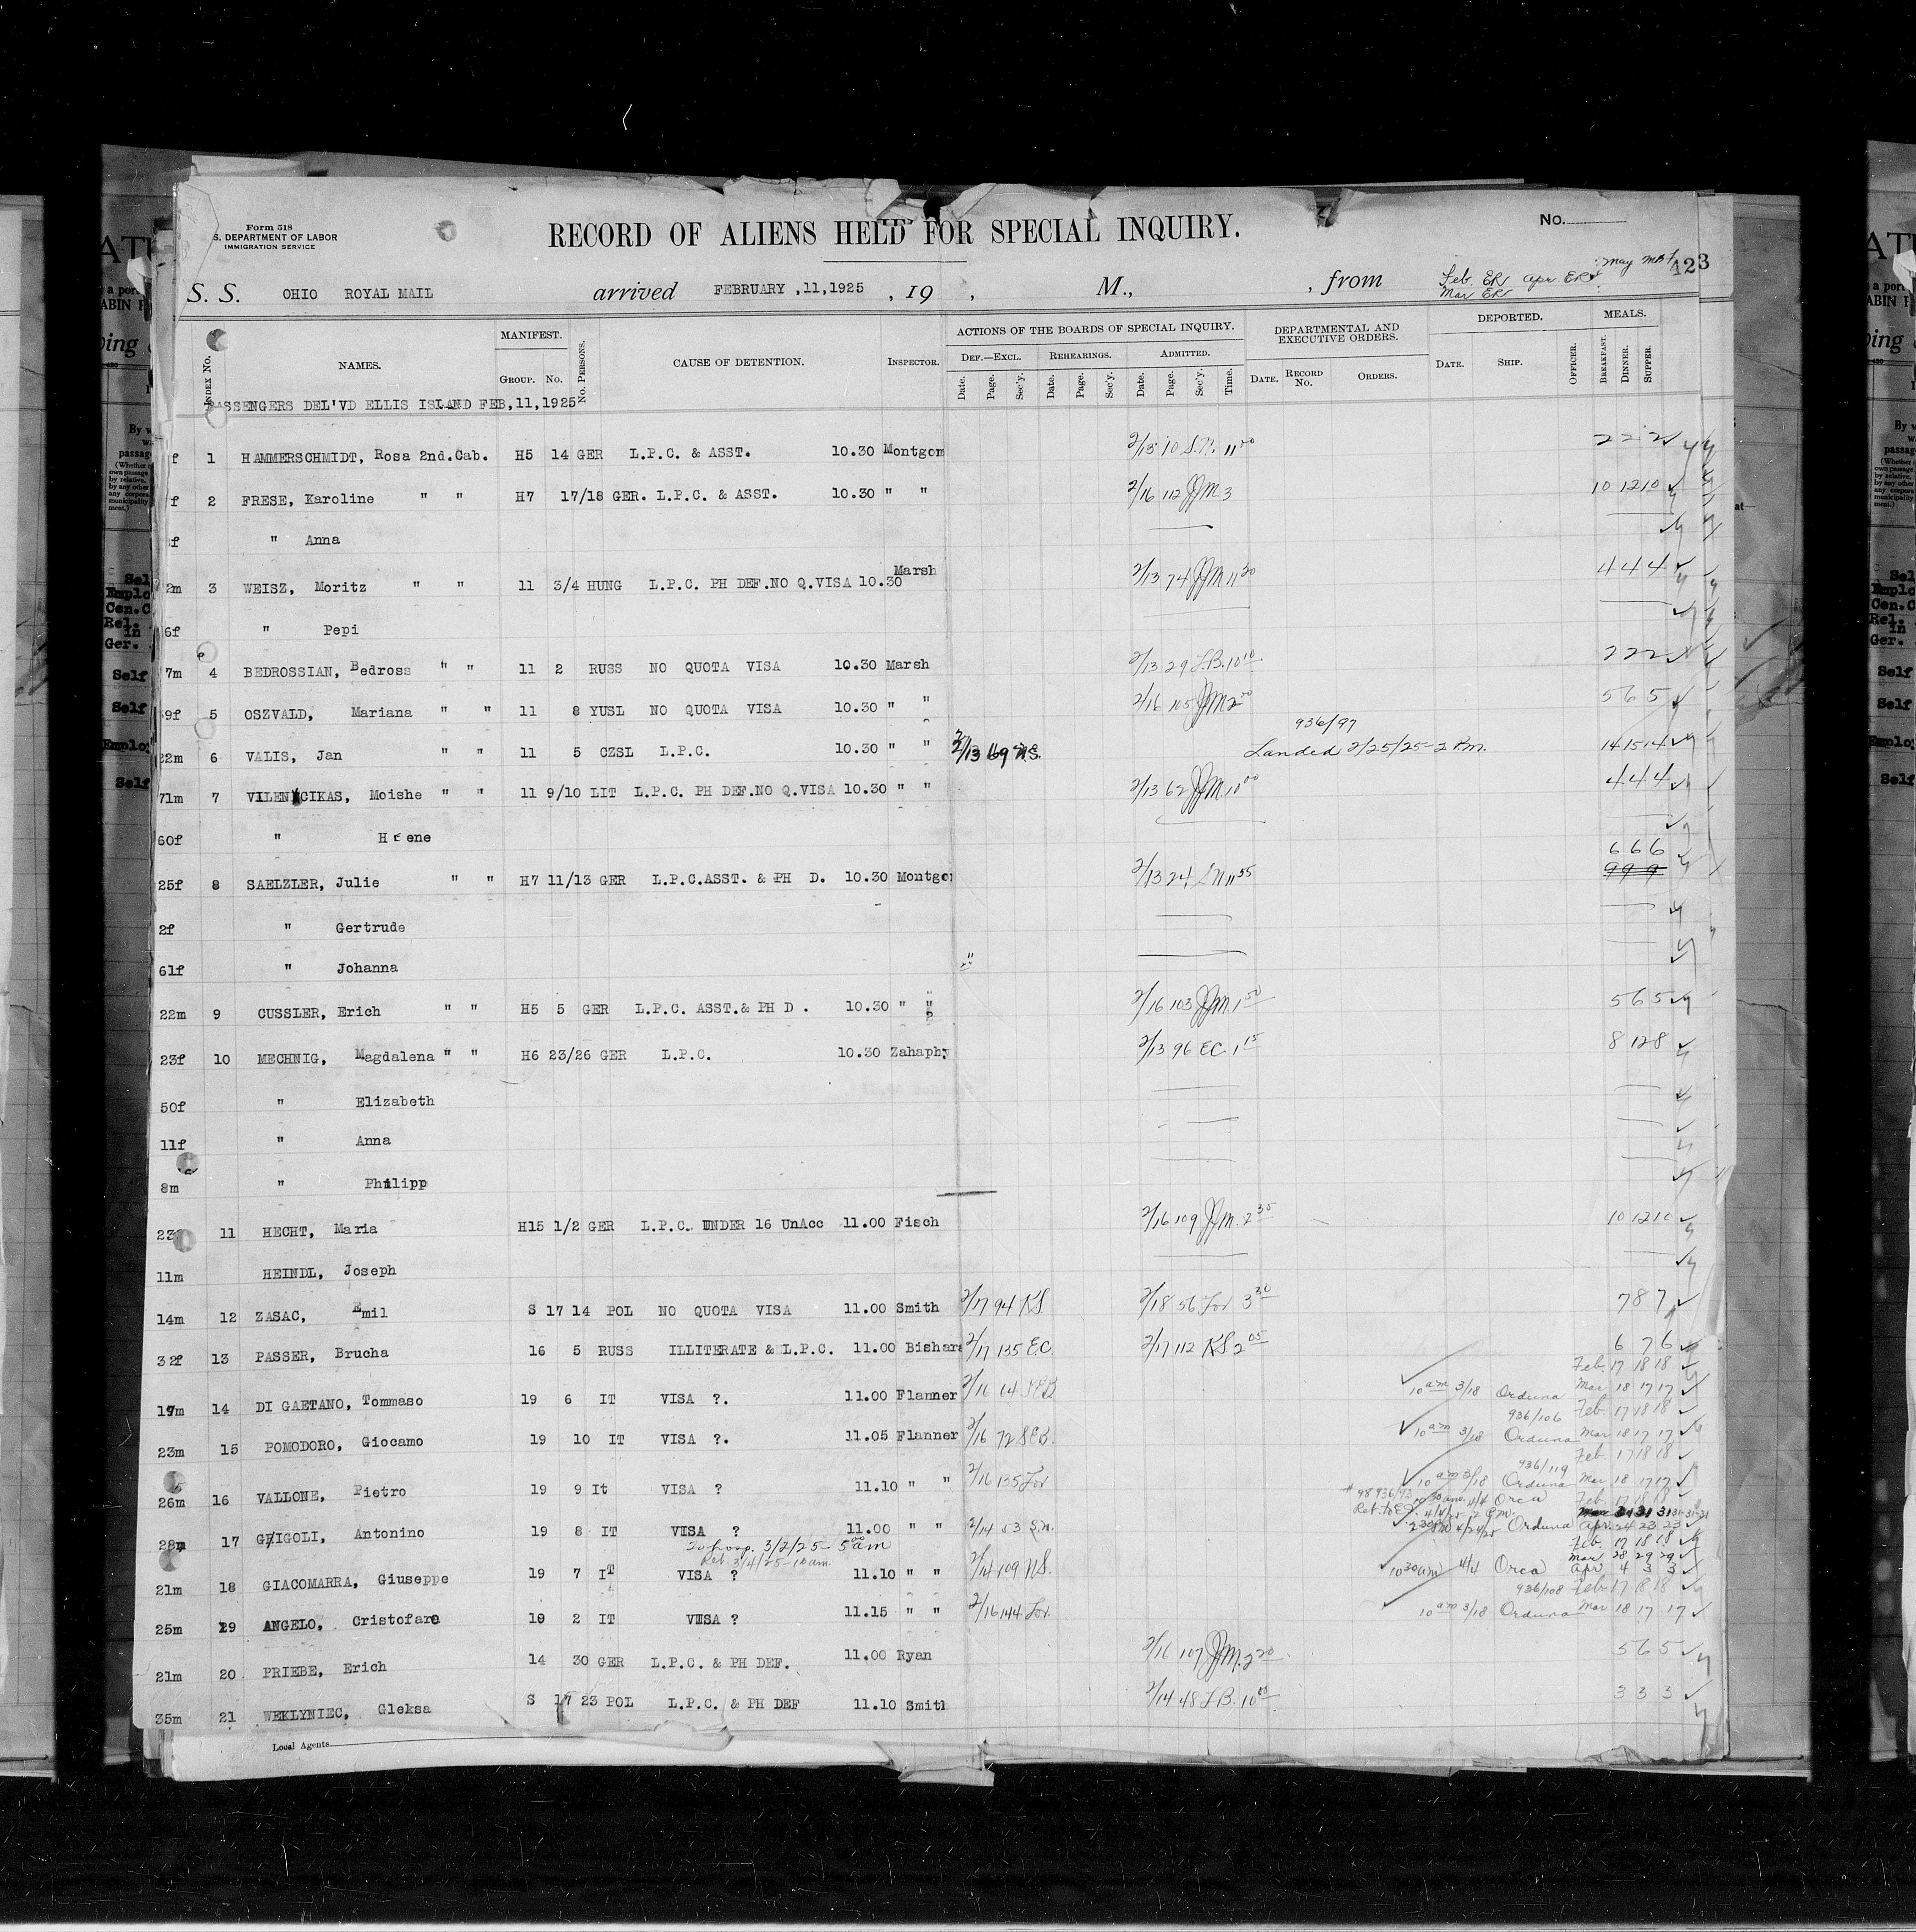 Form 518
S. DEPARTMENT OF LABOR
IMMIGRATION SERVICE
RECORD OF ALIENS HELD FOR SPECIAL INQUIRY.
No.
423
S. S. OHIO ROYAL MAIL arrived FEBRUARY ,11,1925 , 19 , M., , from Feb. ER Apr. ER May
Mar ER
Index No. NAMES. MANIFEST. Group. No. No. Persons. CAUSE OF DETENTION. Inspector. ACTIONS OF THE BOARDS OF SPECIAL INQUIRY. Def.—Excl. Date. Page. Sec'y. Rehearings. Date. Page. Sec'y. Admitted. Date. Page. Sec'y. Time. DEPARTMENTAL AND EXECUTIVE ORDERS. Date. Record No. Orders. DEPORTED. Date. Ship. Officer. MEALS. Breakfast. Dinner. Supper.
PASSENGERS DEL'VD ELLIS ISLAND FEB,11,1925
f 1 HAMMERSCHMIDT, Rosa 2nd.Cab. H5 14 GER L.P.C. & ASST. 10.30 Montgom 2/13 10 S.N. 11 00 2 2 2
f 2 FRESE, Karoline " " H7 17/18 GER. L.P.C. & ASST. 10.30 " " 2/16 112 JJM 3 10 12 10
f " Anna
2m 3 WEISZ, Moritz " " 11 3/4 HUNG L.P.C. PH DEF.NO Q.VISA 10.30 Marsh 2/13 74 JJM 11 20 4 4 4
6f " Pepi
7m 4 BEDROSSIAN, Bedross " " 11 2 RUSS NO QUOTA VISA 10.30 Marsh 2/13 29 L.B. 10 10 2 2 2
9f 5 OSZVALD, Mariana " " 11 8 YUSL NO QUOTA VISA 10.30 " " 2/16 105 JJM 2 00 5 6 5
22m 6 VALIS, Jan " " 11 5 CZSL L.P.C. 10.30 " " 2/13 69 N.S. 936/97 Landed 2/25/25 - 2 P.m. 14 15 14
71m 7 VILENCIKAS, Moishe " " 11 9/10 LIT L.P.C. PH DEF.NO Q.VISA 10.30 " " 2/13 62 JJM. 10 00 4 4 4
60f " Hcene
25f 8 SAELZLER, Julie " " H7 11/13 GER L.P.C.ASST. & PH D. 10.30 Montgo 2/13 24 S.N 11 55 6 6 6
9 9 9
2f " Gertrude
61f " Johanna
22m 9 CUSSLER, Erich " " H5 5 GER L.P.C. ASST.& PH D . 10.30 " " 2/16 103 JJM. 1 50 5 6 5
23f 10 MECHNIG, Magdalena " " H6 23/26 GER L.P.C. 10.30 Zahaphy 2/13 96 EC. 1 15 8 12 8
50f " Elizabeth
11f " Anna
8m " Philipp
23 11 HECHT, Maria H15 1/2 GER L.P.C. UNDER 16 UnAcc 11.00 Fisch 2/16 109 JJM. 2 35 10 12 10
11m HEINDL, Joseph
14m 12 ZASAC, Emil S 17 14 POL NO QUOTA VISA 11.00 Smith 2/17 94 KS 2/18 56 For 3 30 7 8 7
32f 13 PASSER, Brucha 16 5 RUSS ILLITERATE & L.P.C. 11.00 Bishara 2/17 135 E.C. 2/17 112 KS 2 05 6 7 6
Feb. 17 18 18
19m 14 DI GAETANO, Tommaso 19 6 IT VISA ?. 11.00 Flanner 2/16 64 10 am 3/18 Orduna Mar 18 17 17
936/106 Feb. 17 18 18
23m 15 POMODORO, Giocamo 19 10 IT VISA ?. 11.05 Flanner 2/16 72 SEB. 10 am 3/18 Orduna Mar 18 17 17
936/119 Feb 17 18 18
26m 16 VALLONE, Pietro 19 9 It VISA ? 11.10 " " 2/16 135 For 10 am 3/18 Orduna Mar 18 17 17
10 30 am. 4/4 Orca Feb 17 18 18
28m 17 GAIGOLI, Antonino 19 8 IT VISA ? 11.00 " " 2/14 53 S.N. 2 30 PM 4/24/25 Orduna Apr. 24 23 23
To hosp. 3/2/25 - 5 00 am
Ret. 3/4/25 - 10 am.
Feb. 17 18 18
Mar 28 29 29
21m 18 GIACOMARRA, Giuseppe 19 7 IT VISA ? 11.10 " " 2/14 109 N.S. 10 30 am 4/4 Orca Apr 4 3 3
936/108 Feb 17 18 18
25m 19 ANGELO, Cristofaro 19 2 IT VISA ? 11.15 " " 2/16 144 For. 10 am 3/18 Orduna Mar 18 17 17
21m 20 PRIEBE, Erich 14 30 GER L.P.C. & PH DEF. 11.00 Ryan 2/16 107 JJM. 2 20 5 6 5
35m 21 WEKLYNIEC, Gleksa S 17 23 POL L.P.C. & PH DEF 11.10 Smith 2/14 48 L.B. 10 00 3 3 3
Local Agents